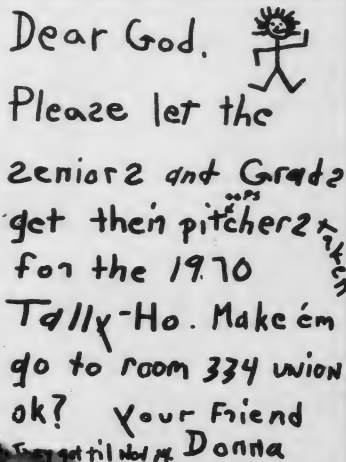 Dear God.
Please let the
seniors and Grads
oops
get their pitchers taken
for the 1970
Tally-Ho. Make em
go to room 334 union
ok? Your Friend
They got til Nov Donna